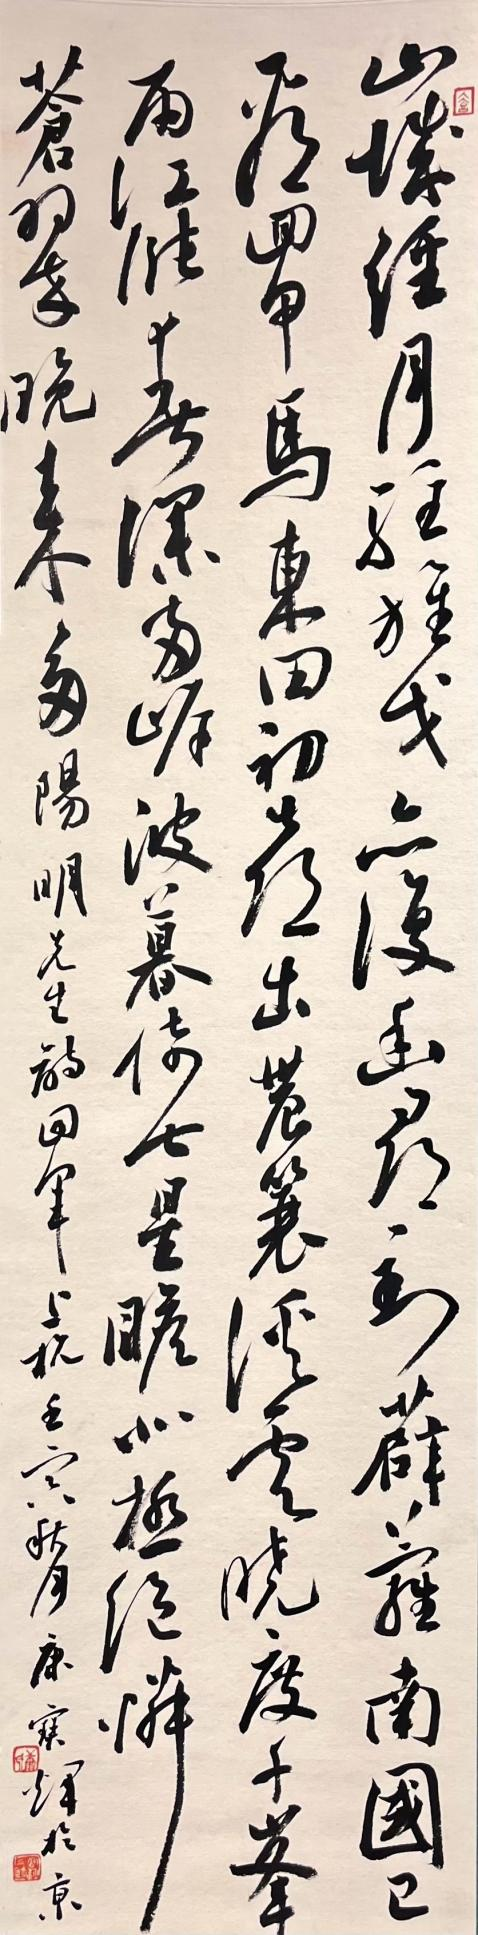 山城經月駐旌戈亦復幽尋到薜蘿南國已
看回甲馬東田初喜出農蓑溪雲曉度千峯
雨江漲春深兩岸波暮倚七星瞻北極絕憐
蒼翠晚來多 陽明先生詩回軍上杭壬寅秋月康寶輝於京